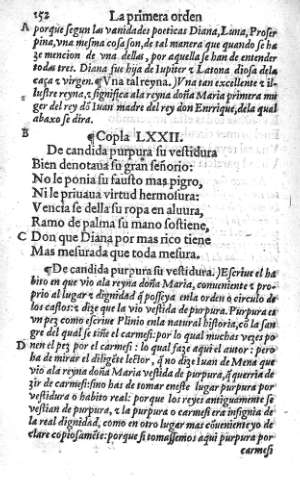 152 La primera orden
A porque segun las vanidades poeticas Diana, Luna, Proser
pina, vna mesma cosa son, de tal manera que quando se ha
ze mencion de vna dellas, por aquella se han de entender
todas tres. Diana fue hija de Iupiter & Latona diosa dela
caça & virgen. ¶ Vna tal reyna.) Vna tan excellente & il-
lustre reyna, & significa ala reyna doña Maria primera mu
ger del rey dõ Iuan madre del rey don Enrrique, dela qual
abaxo se dira.
B ¶ Copla LXXII.
De candida purpura su vestidura
Bien denotaua su gran señorio:
No le ponia su fausto mas pigro,
Ni le priuaua virtud hermosura:
Vencia se della su ropa en aluura,
Ramo de palma su mano sostiene,
C Don que Diana por mas rico tiene
Mas mesurada que toda mesura.
¶ De candida purpura su vestidura.) Escriue el ha
bito en que vio ala reyna doña Maria, conueniente & pro-
prio al lugar & dignidad q̃ posseya enla orden o circulo de
los castos: & dize que la vio vestida de purpura. Purpura es
vn pez como escriue Plinio enla natural historia, cõ la san-
gre del qual se tiñe el carmesi: por lo qual muchas vezes po
D nen el pez por el carmesi: lo qual faze aqui el autor: pero
ha de mirar el diligẽte lector, q̃ no dize Iuan de Mena que
vio ala reyna doña Maria vestida de purpura, q̃ querria de
zir de carmesi: sino has de tomar eneste lugar purpura por
vestidura o habito real: porque los reyes antiguamente se
vestian de purpura, & la purpura o carmesi era insignia de
la real dignidad, como en otro lugar mas cõueniente yo de
clare copiosamẽte: porque si tomassemos aqui purpura por
carmesi